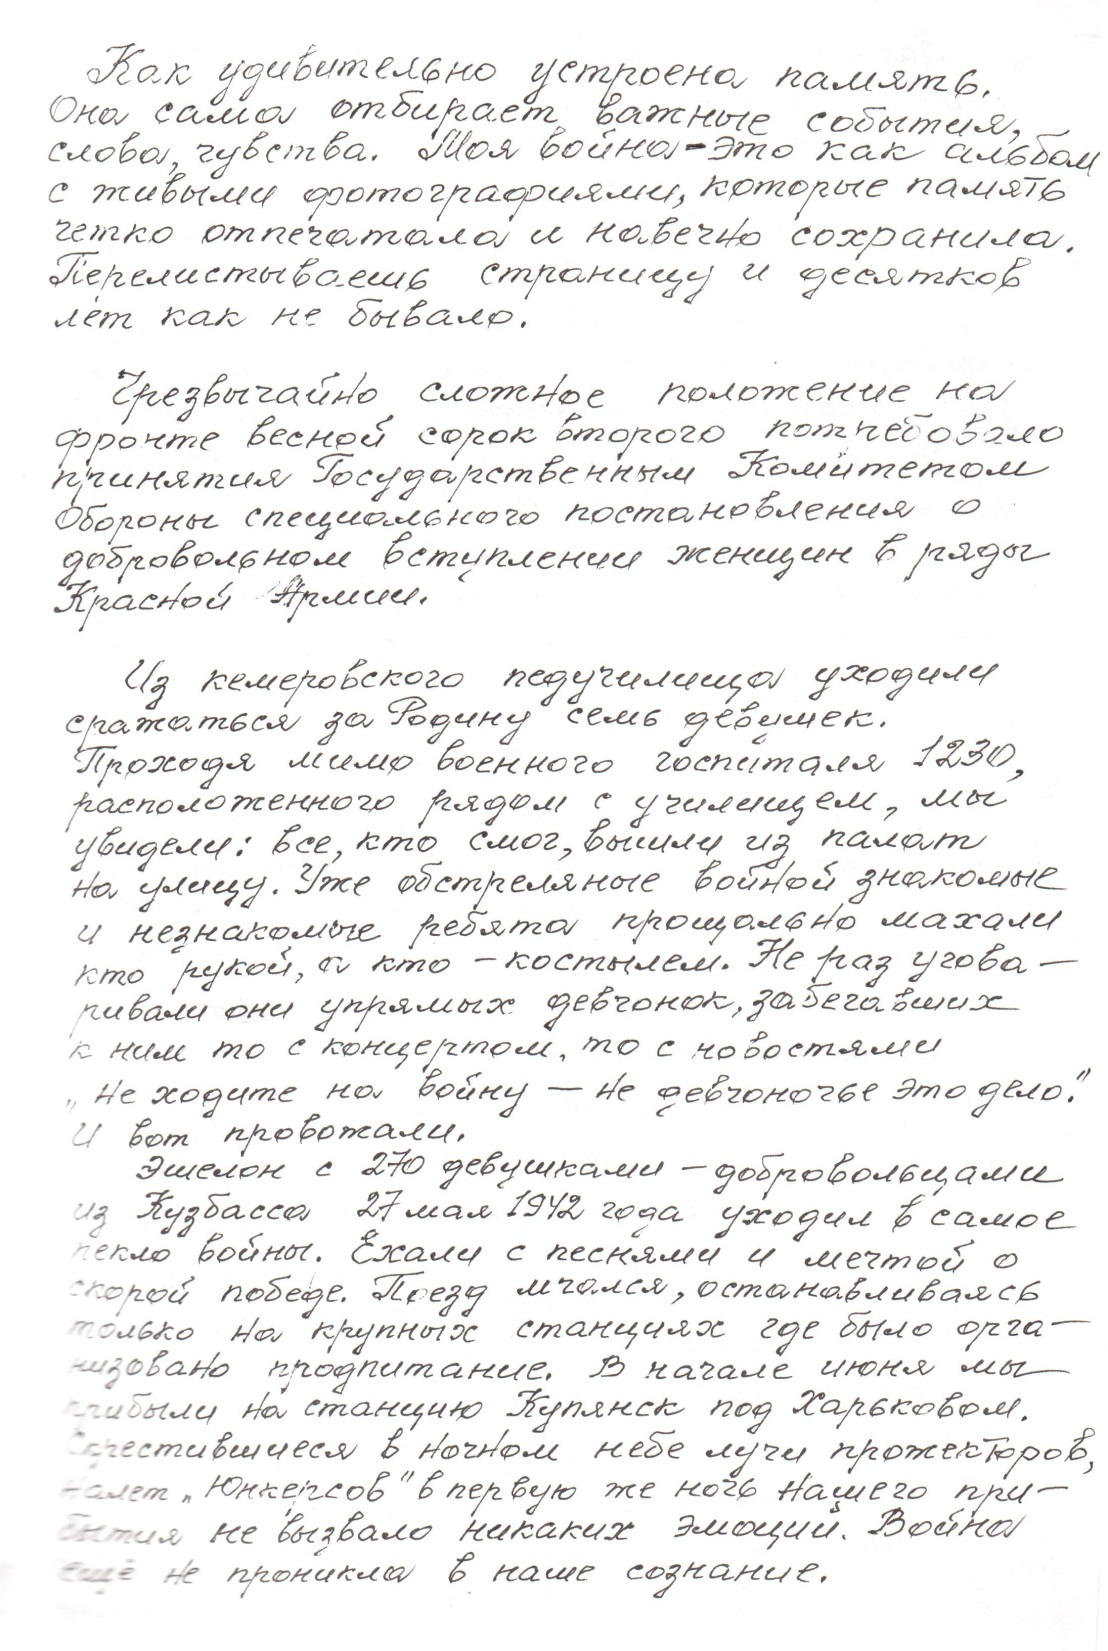 Как удивительно устроена память.
Она сама отбирает важные события,
слова, чувства. Моя война - это как альбом
с живыми фотографиями, которые память
четко отпечатала и навечно сохранила.
Перелистываешь страницу и десятков
лет как не бывало.
Чрезвычайно сложное положение на
фронте весной сорок второго потребовало
принятия Государственным Комитетом
Обороны специального постановления о
добровольном вступлении женщин в ряды
Красной Армии.
Из кемеровского педучилища уходили
сражаться за Родину семь девушек.
Проходя мимо военного госпиталя 1230,
расположенного рядом с училищем, мы
увидели: все, кто смог, вышли из палат
на улицу. Уже обстреляные войной знакомые
и незнакомые ребята прощально махали
кто рукой, а кто – костылем. Не раз угова-
ривали они упрямых девчонок, забегавших
к ним то с концертом, то с новостями
„Не ходите на войну – не девчоночье это дело."
И вот провожали.
Эшелон с 270 девушками – добровольцами
из Кузбасса 27 мая 1942 года уходил в самое
пекло войны. Ехали с песнями и мечтой о
скорой победе. Поезд мчался, останавливаясь
только на крупных станциях где было орга-
низовано продпитание. В начале июня мы
прибыли на станцию Купянск под Харьковом.
Скрестившиеся в ночном небе лучи прожекторов,
налет „Юнкерсов" в первую же ночь нашего при-
бытия не вызвало никаких эмоций. Война
ещё не проникла в наше сознание.